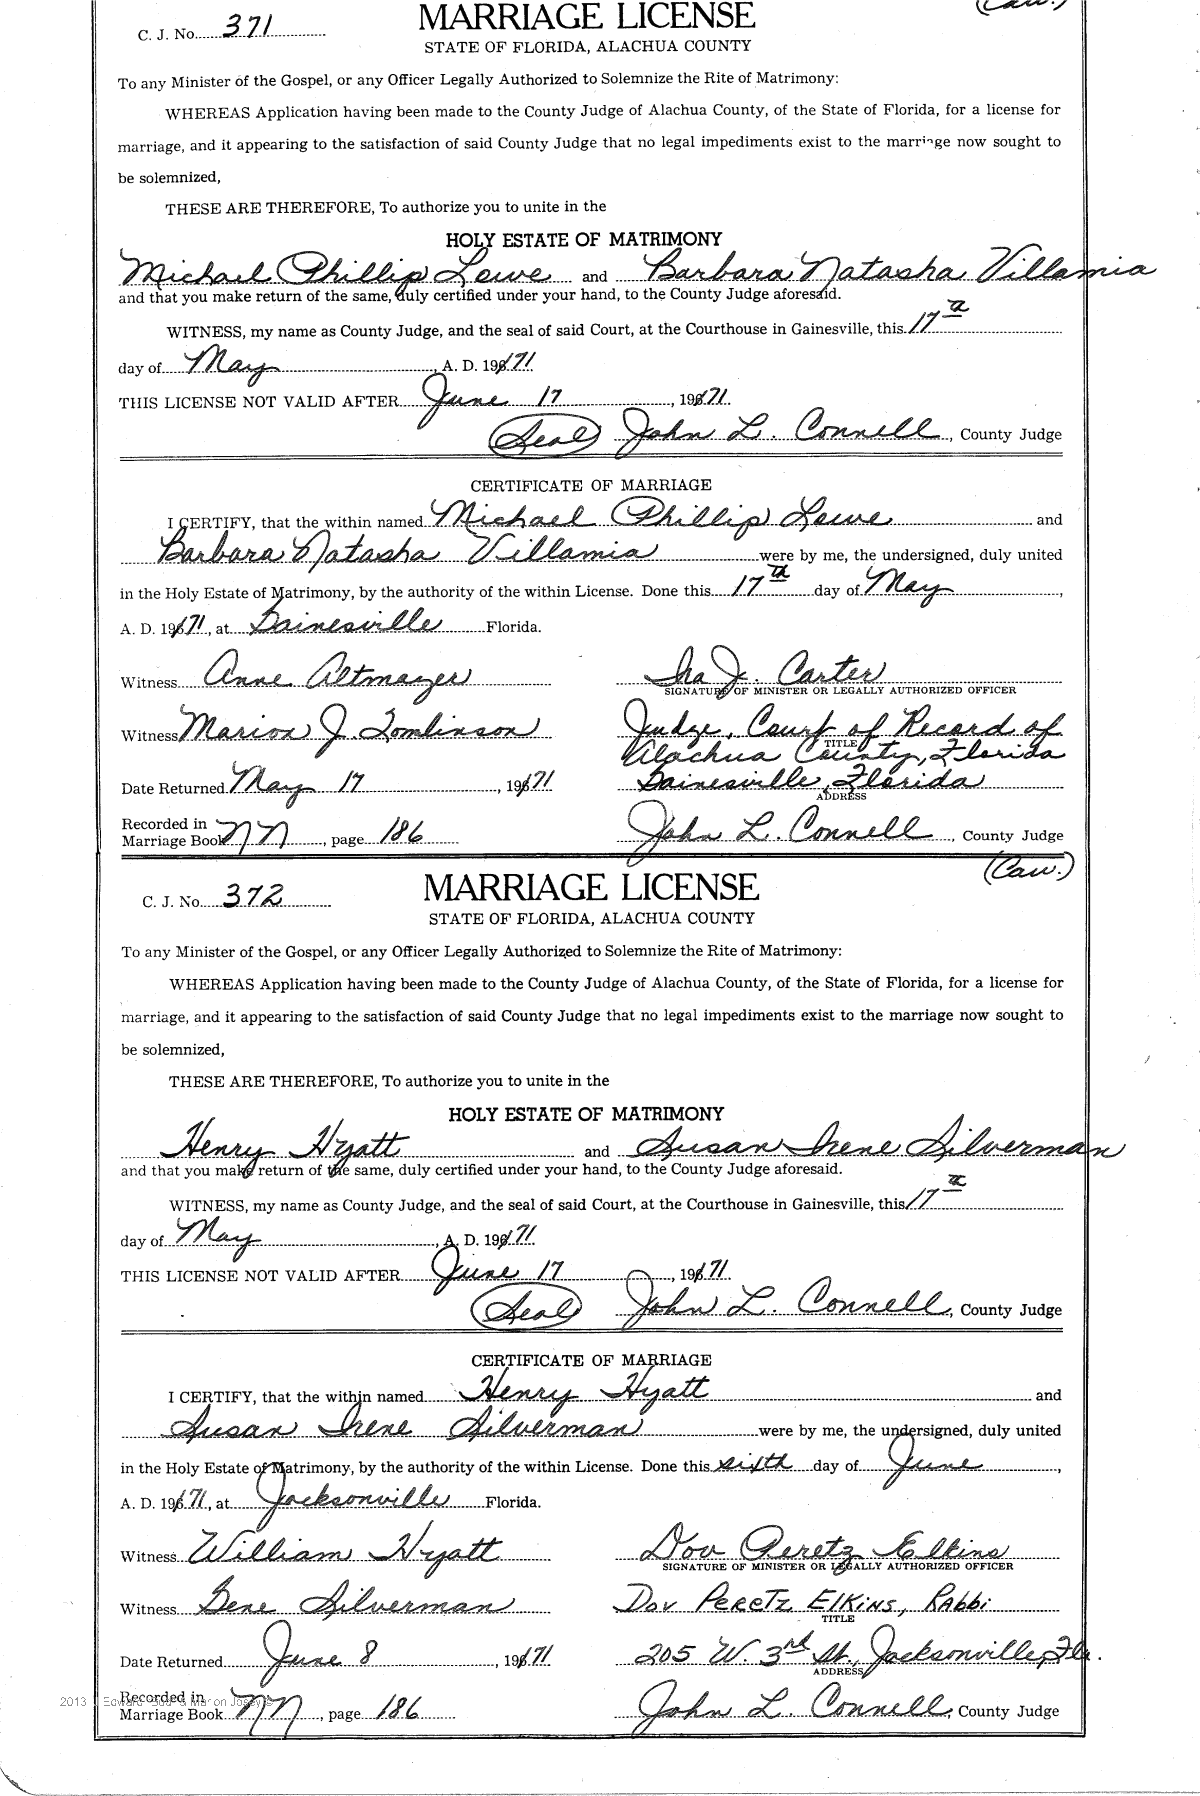 (Caw.)
C. J. No. 371
MARRIAGE LICENSE
STATE OF FLORIDA, ALACHUA COUNTY
To any Minister of the Gospel, or any Officer Legally Authorized to Solemnize the Rite of Matrimony:
WHEREAS Application having been made to the County Judge of Alachua County, of the State of Florida, for a license for
marriage, and it appearing to the satisfaction of said County Judge that no legal impediments exist to the marriage now sought to
be solemnized,
THESE ARE THEREFORE, To authorize you to unite in the
HOLY ESTATE OF MATRIMONY
Michael Phillip Lowe and Barbara Natasha Villamia
and that you make return of the same, duly certified under your hand, to the County Judge aforesaid.
WITNESS, my name as County Judge, and the seal of said Court, at the Courthouse in Gainesville, this 17th
day of May, A. D. 1971.
THIS LICENSE NOT VALID AFTER June 17, 1971.
(Seal) John L. Connell, County Judge
CERTIFICATE OF MARRIAGE
I CERTIFY, that the within named Michael Phillip Lowe and
Barbara Natasha Villamia were by me, the undersigned, duly united
in the Holy Estate of Matrimony, by the authority of the within License. Done this 17th day of May,
A. D. 1971, at Gainesville Florida.
Witness Anne Altmayer Ira J. Carter
SIGNATURE OF MINISTER OR LEGALLY AUTHORIZED OFFICER
Witness Marion J. Tomlinson Judge, Court of Record of
TITLE
Alachua County, Florida
Date Returned May 17, 1971 Gainesville, Florida
ADDRESS
Recorded in
Marriage Book NN, page 186 John L. Connell, County Judge
(Caw.)
C. J. No. 372
MARRIAGE LICENSE
STATE OF FLORIDA, ALACHUA COUNTY
To any Minister of the Gospel, or any Officer Legally Authorized to Solemnize the Rite of Matrimony:
WHEREAS Application having been made to the County Judge of Alachua County, of the State of Florida, for a license for
marriage, and it appearing to the satisfaction of said County Judge that no legal impediments exist to the marriage now sought to
be solemnized,
THESE ARE THEREFORE, To authorize you to unite in the
HOLY ESTATE OF MATRIMONY
Henry Hyatt and Susan Irene Silverman
and that you make return of the same, duly certified under your hand, to the County Judge aforesaid.
WITNESS, my name as County Judge, and the seal of said Court, at the Courthouse in Gainesville, this 17th
day of May, A. D. 1971.
THIS LICENSE NOT VALID AFTER June 17, 1971.
(Seal) John L. Connell, County Judge
CERTIFICATE OF MARRIAGE
I CERTIFY, that the within named Henry Hyatt and
Susan Irene Silverman were by me, the undersigned, duly united
in the Holy Estate of Matrimony, by the authority of the within License. Done this sixth day of June,
A. D. 1971, at Jacksonville Florida.
Witness William Hyatt Dov Peretz Elkins
SIGNATURE OF MINISTER OR LEGALLY AUTHORIZED OFFICER
Witness Gene Silverman Dov Peretz Elkins, Rabbi
TITLE
Date Returned June 8, 1971 205 W. 3rd St., Jacksonville, Fla.
ADDRESS
Recorded in
Marriage Book NN, page 186 John L. Connell, County Judge
2013